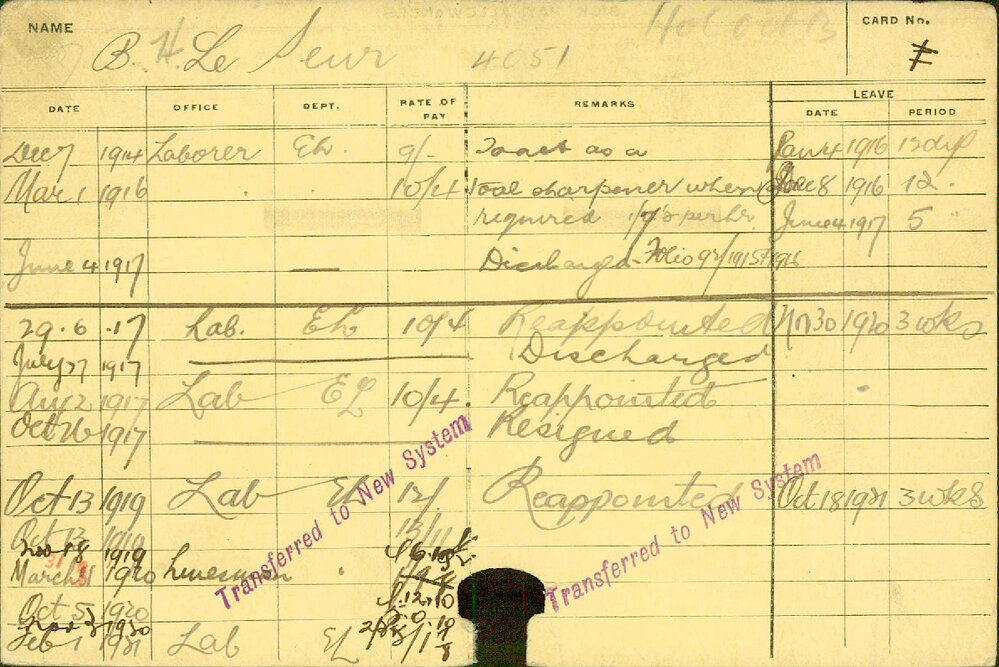 NAME B. H. Le Seur 4051 CARD No.
LEAVE
DATE OFFICE DEPT. RATE OF PAY REMARKS DATE PERIOD
Dec 7 1914 Laborer EL. 9/- To act as a Jan 4 1916 12 dys
Mar 1 1916 10/4 tool sharpener when Dec 8 1916 12 "
required per hr June 4 1917 5 "
June 4 1917 — Discharged - Folio 92/1915
29.6.17 Lab. EL 10/4 Reappointed 30 1920 3 wks
July 27 1917 Discharged
Aug 2 1917 Lab EL 10/4. Reappointed
Oct 26 1917 Resigned
Oct 13 1919 Lab EL 12/ Reappointed Oct 18 1921 3 wks
Oct 13 1919 13/11
Nov 18 1919
March 31 1920 Linesman "
Oct 5 1920
1920
Feb 1 1921 Lab EL
Transferred to New System
Transferred to New System